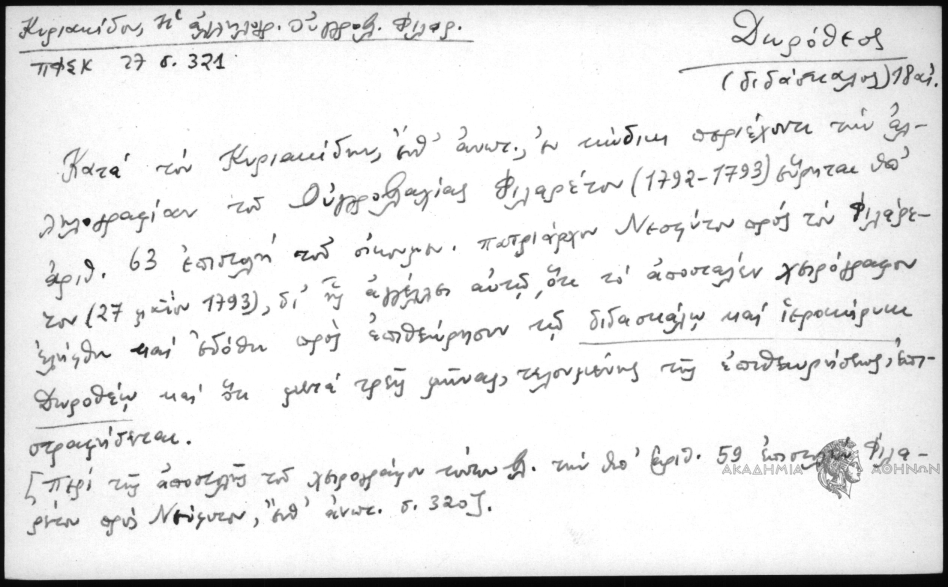 Κυριακίδου, Ἡ ἀλληλογρ. Οὐγγροβλ. Φιλαρ.
ΠΦΣΚ 27 σ. 321
Δωρόθεος
(διδάσκαλος) 18 αἰ.
Κατά τόν Κυριακίδην, ἔνθ' ἀνωτ., ἐν κώδικι περιέχοντι τήν ἀλ-
ληλογραφίαν τοῦ Οὐγγροβλαχίας Φιλαρέτου (1792-1793) εὕρηται ὑπ'
ἀριθ. 63 ἐπιστολή τοῦ οἰκουμεν. πατριάρχου Νεοφύτου πρός τόν Φιλάρε-
τον (27 μαΐου 1793), δι' ἧς ἀγγέλλει αὐτῷ ὅτι τό ἀποσταλέν χειρόγραφον
ἐλήφθη καί ἐδόθη πρός ἐπιθεώρησιν τῷ διδασκάλῳ καί ἱεροκήρυκι
Δωροθέῳ καί ὅτι μετά τρεῖς μῆνας, τελουμένης τῆς ἐπιθεωρήσεως, ἐπι-
στραφήσεται.
[Περί τῆς ἀποστολῆς τοῦ χειρογράφου τούτου βλ. τήν ὑπ' ἀριθ. 59 ἐπιστολήν Φιλα-
ρέτου πρός Νεόφυτον, ἔνθ' ἀνωτ. σ. 320].
ΑΚΑΔΗΜΙΑ ΑΘΗΝΩΝ